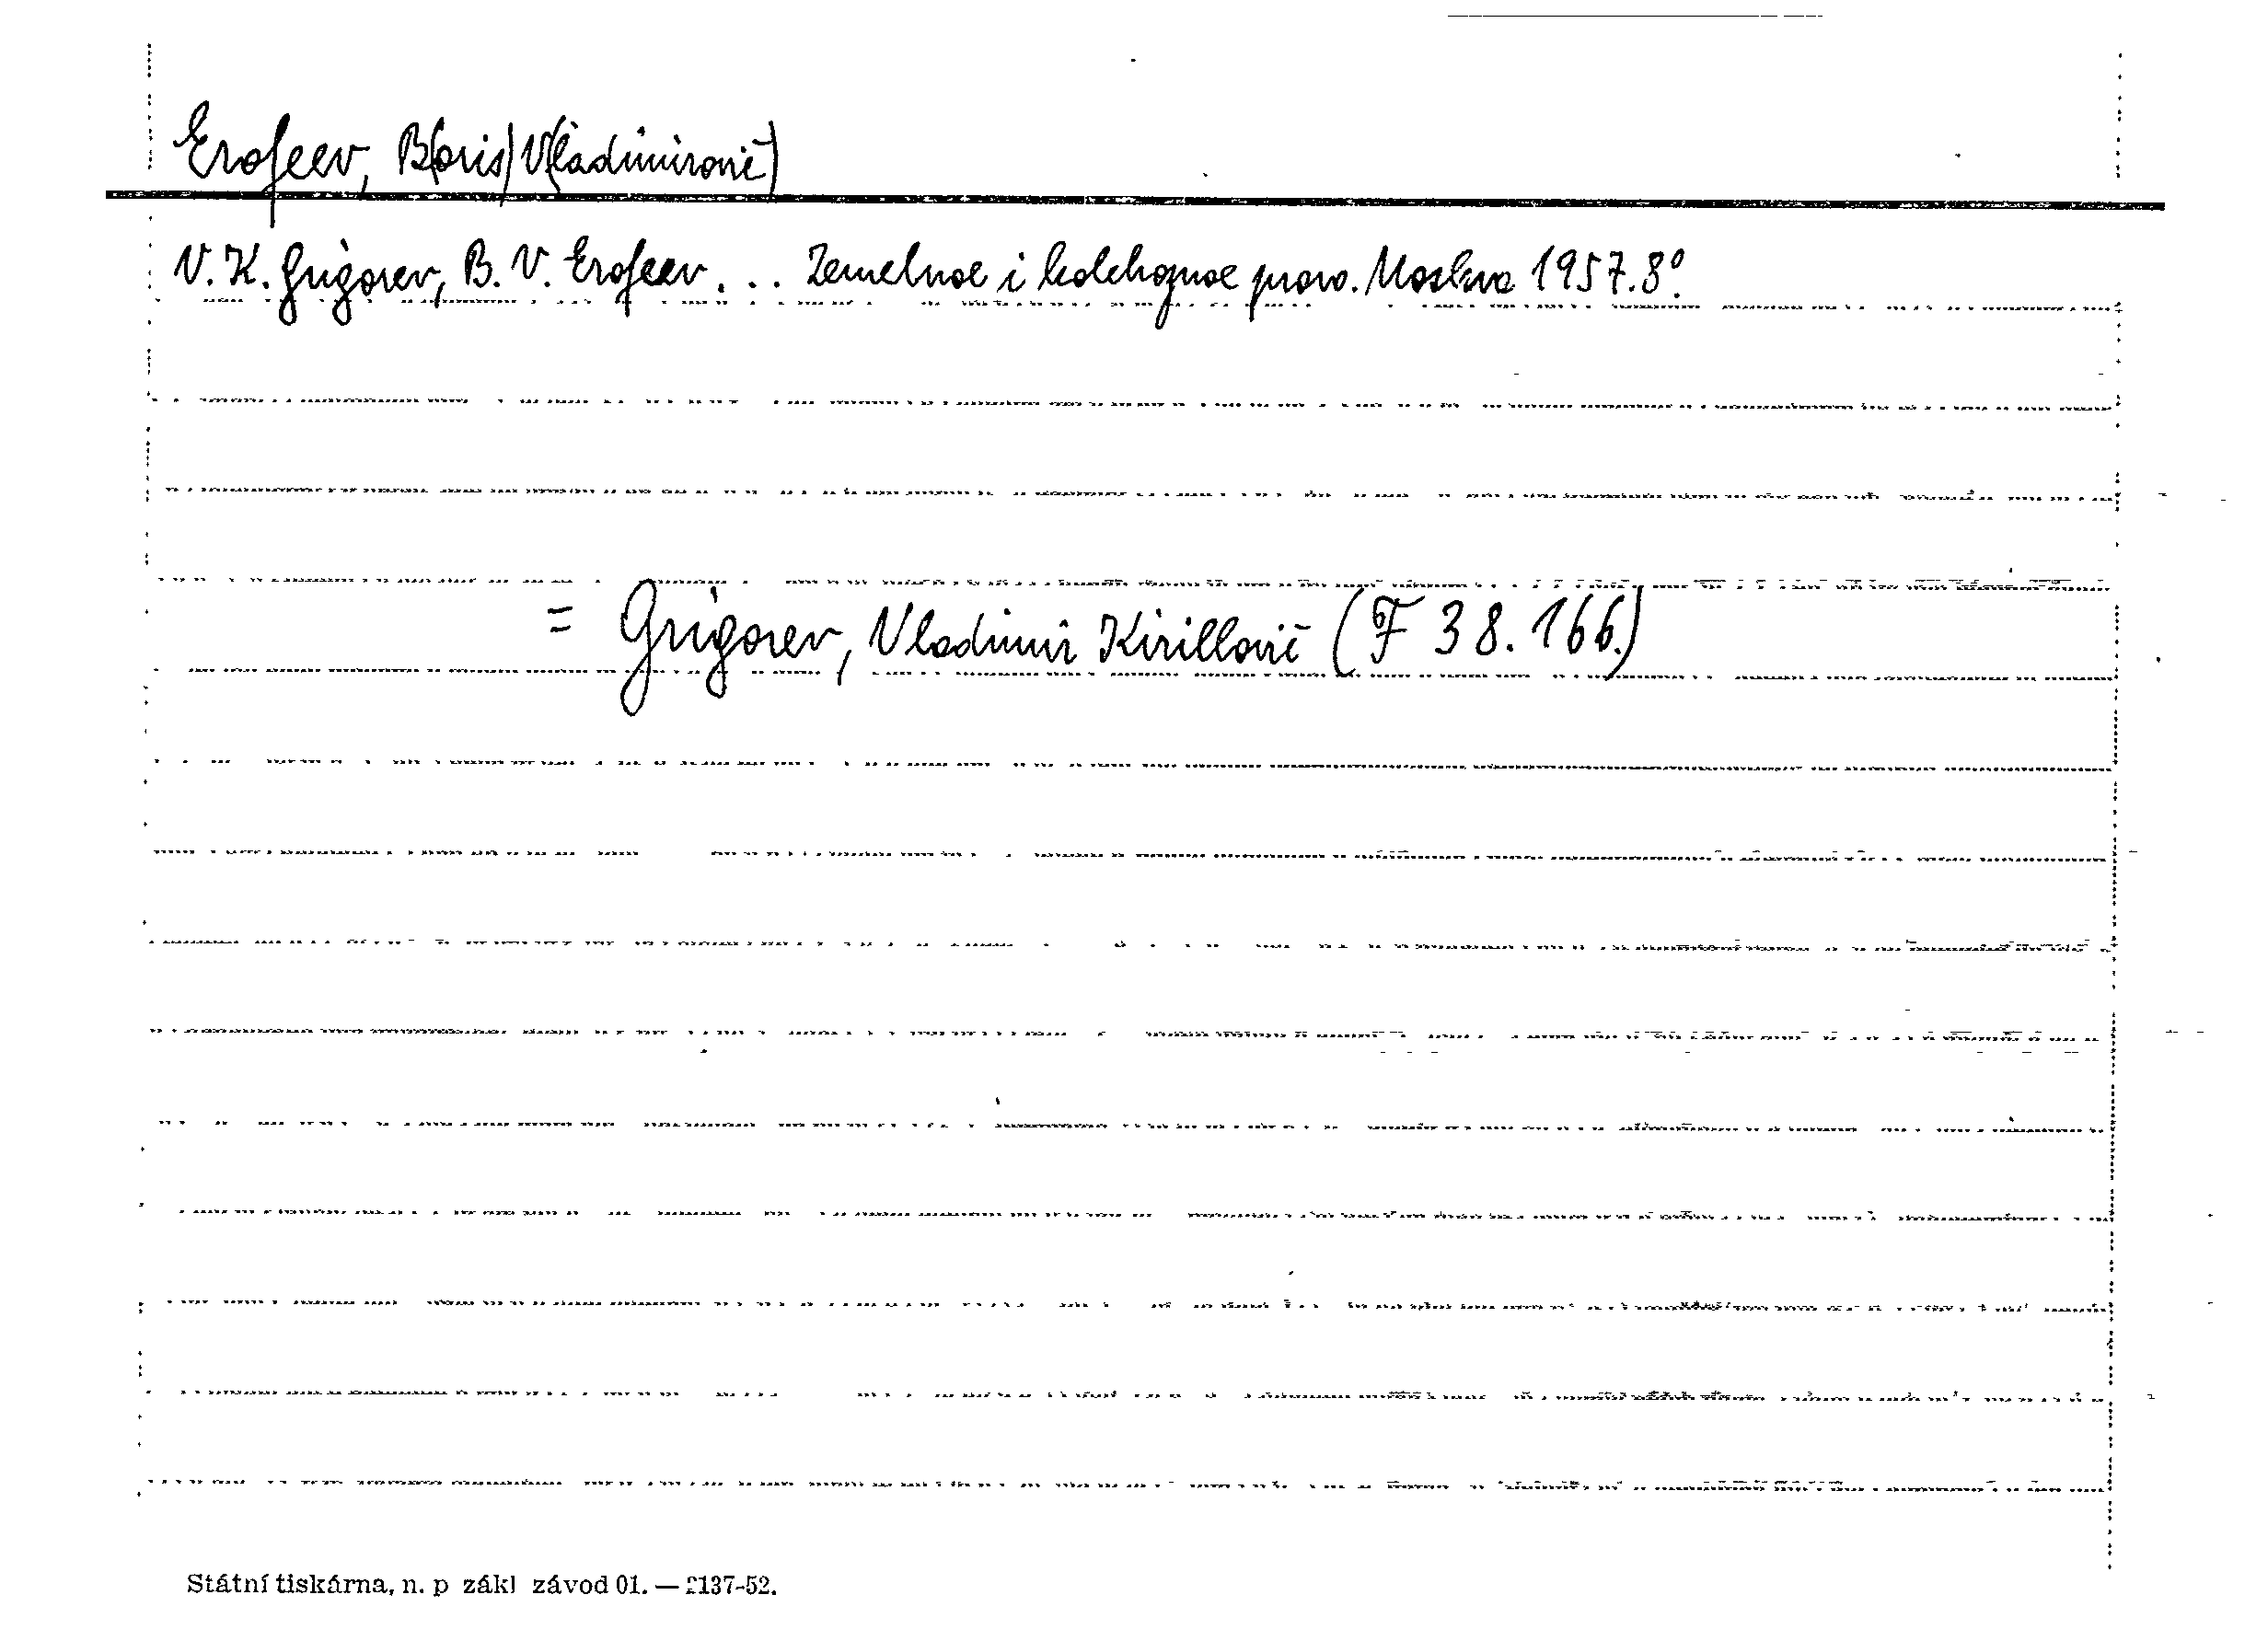 Erofeev, B(oris) V(ladimirovič)
V. K. Grigorev, B. V. Erofeev... Zemelnoe i kolchoznoe pravo. Moskva 1957. 8°.
= Grigorev, Vladimir Kirillovič (F 38.166.)
Státní tiskárna, n. p zákl závod 01. — 2137-52.